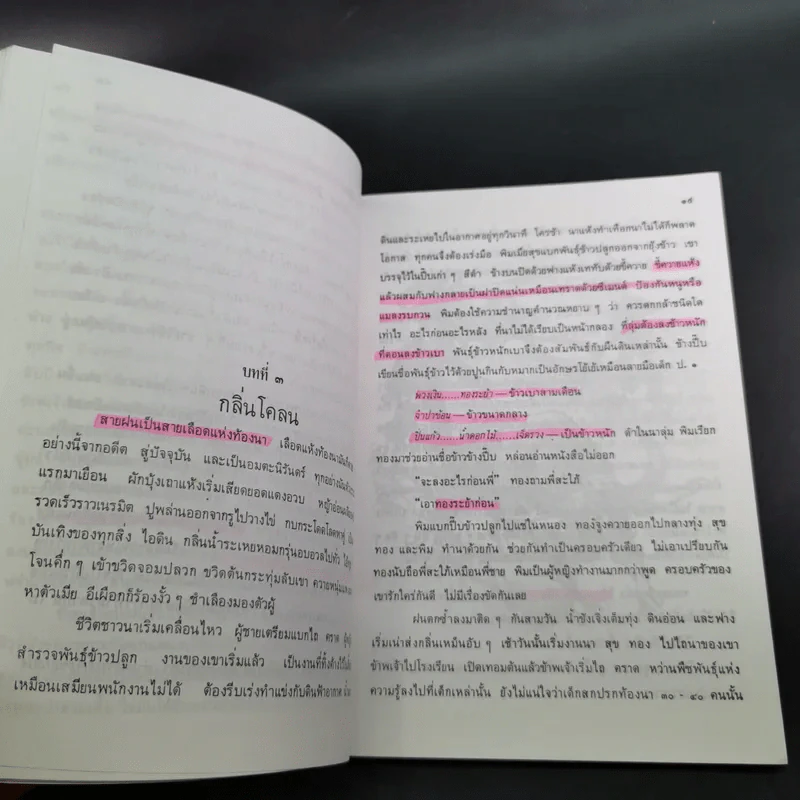 บทที่ ๓
กลิ่นโคลน
สายฝนเป็นสายเลือดแห่งท้องนา เลือดแห่งท้องนามัน
อย่างนี้จากอดีต สู่ปัจจุบัน และเป็นอมตะนิรันดร์ ทุกอย่างมัน
แรกมาเยือน ผักบุ้งเถาแห้งเริ่มเสียดยอดแดงอวบ หญ้าอ่อน
รวดเร็วราวเนรมิต ปูพล่านออกจากรูไปวางไข่ กบกระโดดโลด
บันเทิงของทุกสิ่ง ไอดิน กลิ่นน้ำระเหยหอมกรุ่นอบอวลไปทั่ว
โจนคึก ๆ เข้าขวิดจอมปลวก ขวิดต้นกระทุ่มลับเขา ควายหนุ่ม
หาตัวเมีย อีเผือกก็ร้องงั้ว ๆ ชำเลืองมองตัวผู้
ชีวิตชาวนาเริ่มเคลื่อนไหว ผู้ชายเตรียมแบกไถ คราด
สำรวจพันธุ์ข้าวปลูก งานของเขาเริ่มแล้ว เป็นงานที่ทิ้ง
เหมือนเสมียนพนักงานไม่ได้ ต้องรีบเร่งทำแข่งกับดินฟ้าอากาศ
๑๕
ดินและระเหยไปในอากาศอยู่ทุกวินาที ใครช้า นาแห้งทำเทือกนาไม่ได้ก็พลาด
โอกาส ทุกคนจึงต้องเร่งมือ พิมเมียสุขแบกพันธุ์ข้าวปลูกออกจากยุ้งข้าว เขา
บรรจุไว้ในปี๊บเก่า ๆ สีดำ ข้างบนปิดด้วยฟางแห้งเททับด้วยขี้ควาย ขี้ควายแห้ง
แล้วผสมกับฟางกลายเป็นฝาปิดแน่นเหมือนเทราดด้วยซีเมนต์ ป้องกันหนูหรือ
แมลงรบกวน พิมต้องใช้ความชำนาญคำนวณหยาบ ๆ ว่า ควรตกกล้าชนิดใด
เท่าไร อะไรก่อนอะไรหลัง ที่นาไม่ได้เรียบเป็นหน้ากลอง ที่ลุ่มต้องลงข้าวหนัก
ที่ดอนลงข้าวเบา พันธุ์ข้าวหนักเบาจึงต้องสัมพันธ์กับผืนดินเหล่านั้น ข้างปี๊บ
เขียนชื่อพันธุ์ข้าวไว้ด้วยปูนกินกับหมากเป็นอักษรโย้เย้เหมือนลายมือเด็ก ป. ๑
พวงเงิน......ทองระย้า — ข้าวเบาสามเดือน
จำปาซ้อน — ข้าวขนาดกลาง
ปิ่นแก้ว......น้ำดอกไม้......เจ๊กรวง — เป็นข้าวหนัก ดำในนาลุ่ม พิมเรียก
ทองมาช่วยอ่านชื่อข้าวข้างปี๊บ หล่อนอ่านหนังสือไม่ออก
“จะลงอะไรก่อนพี่” ทองถามพี่สะใภ้
“เอาทองระย้าก่อน”
พิมแบกปี๊บข้าวปลูกไปแช่ในหนอง ทองจูงควายออกไปกลางทุ่ง สุข
ทอง และพิม ทำนาด้วยกัน ช่วยกันทำเป็นครอบครัวเดียว ไม่เอาเปรียบกัน
ทองนับถือพี่สะใภ้เหมือนพี่ชาย พิมเป็นผู้หญิงทำงานมากกว่าพูด ครอบครัวของ
เขารักใคร่กันดี ไม่มีเรื่องขัดกันเลย
ฝนตกซ้ำลงมาติด ๆ กันสามวัน น้ำขังเจิ่งเต็มทุ่ง ดินอ่อน และฟาง
เริ่มเน่าส่งกลิ่นเหม็นอับ ๆ เช้าวันนั้นเริ่มงานนา สุข ทอง ไปไถนาของเขา
ข้าพเจ้าไปโรงเรียน เปิดเทอมต้นแล้วข้าพเจ้าเริ่มไถ คราด หว่านพืชพันธุ์แห่ง
ความรู้ลงไปที่เด็กเหล่านั้น ยังไม่แน่ใจว่าเด็กสกปรกท้องนา ๓๐ - ๔๐ คนนั้น